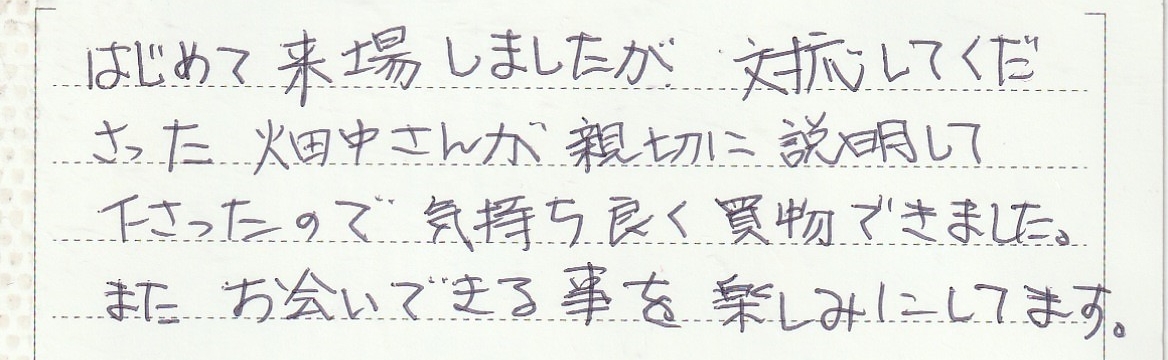 はじめて来場しましたが 対応してくだ
さった 畑中さんが 親切に 説明して
下さったので 気持ち良く買物できました。
また お会いできる事を 楽しみにしてます。